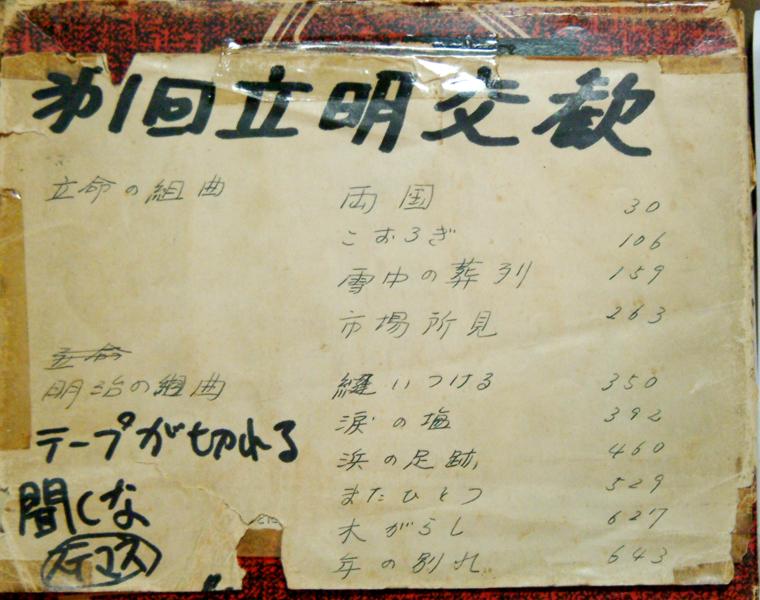 第1回立明交歓
立命の組曲 両国 30
こおろぎ 106
雪中の葬列 159
市場所見 263
立命
明治の組曲 縫いつける 350
涙の塩 392
浜の足跡 460
またひとつ 529
木がらし 627
年の別れ 643
テープが切れる
聞くな
ステマス